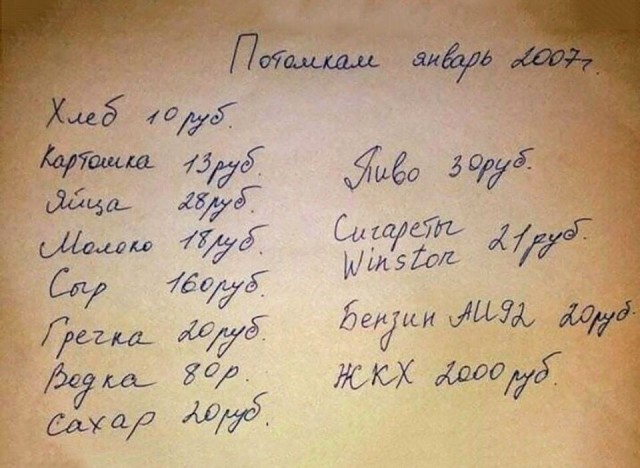 Потомкам январь 2007г.
Хлеб 10руб.
Картошка 13руб.
Яйца 28руб.
Молоко 18руб.
Сыр 160руб.
Гречка 20руб.
Водка 80р.
Сахар 20руб.
Пиво 30руб.
Сигареты
Winston 21руб.
Бензин АИ92 20руб.
ЖКХ 2000руб.